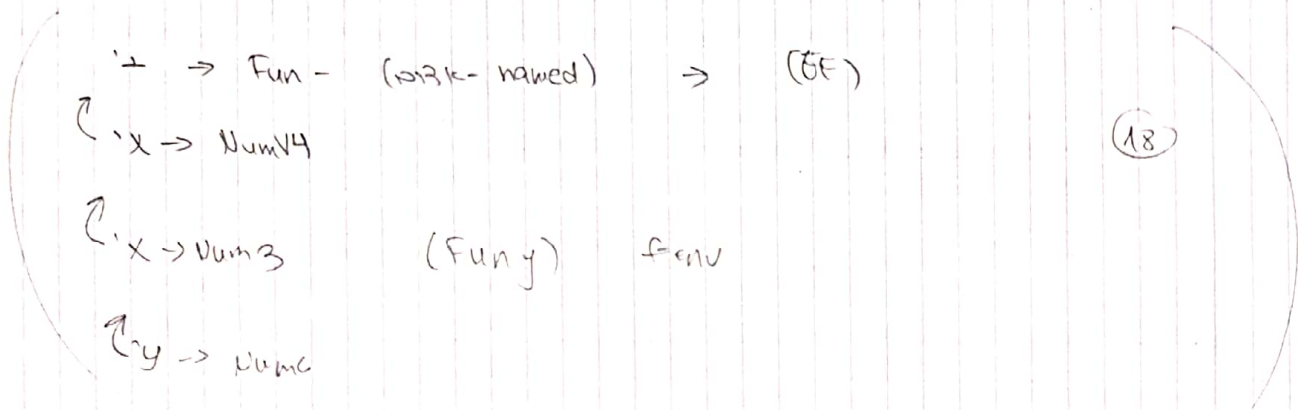 '+ → Fun - (work-named) → (GE)
'x → NumV4
(18)
'x → Num3 (Fun y) fenv
'y → Num6